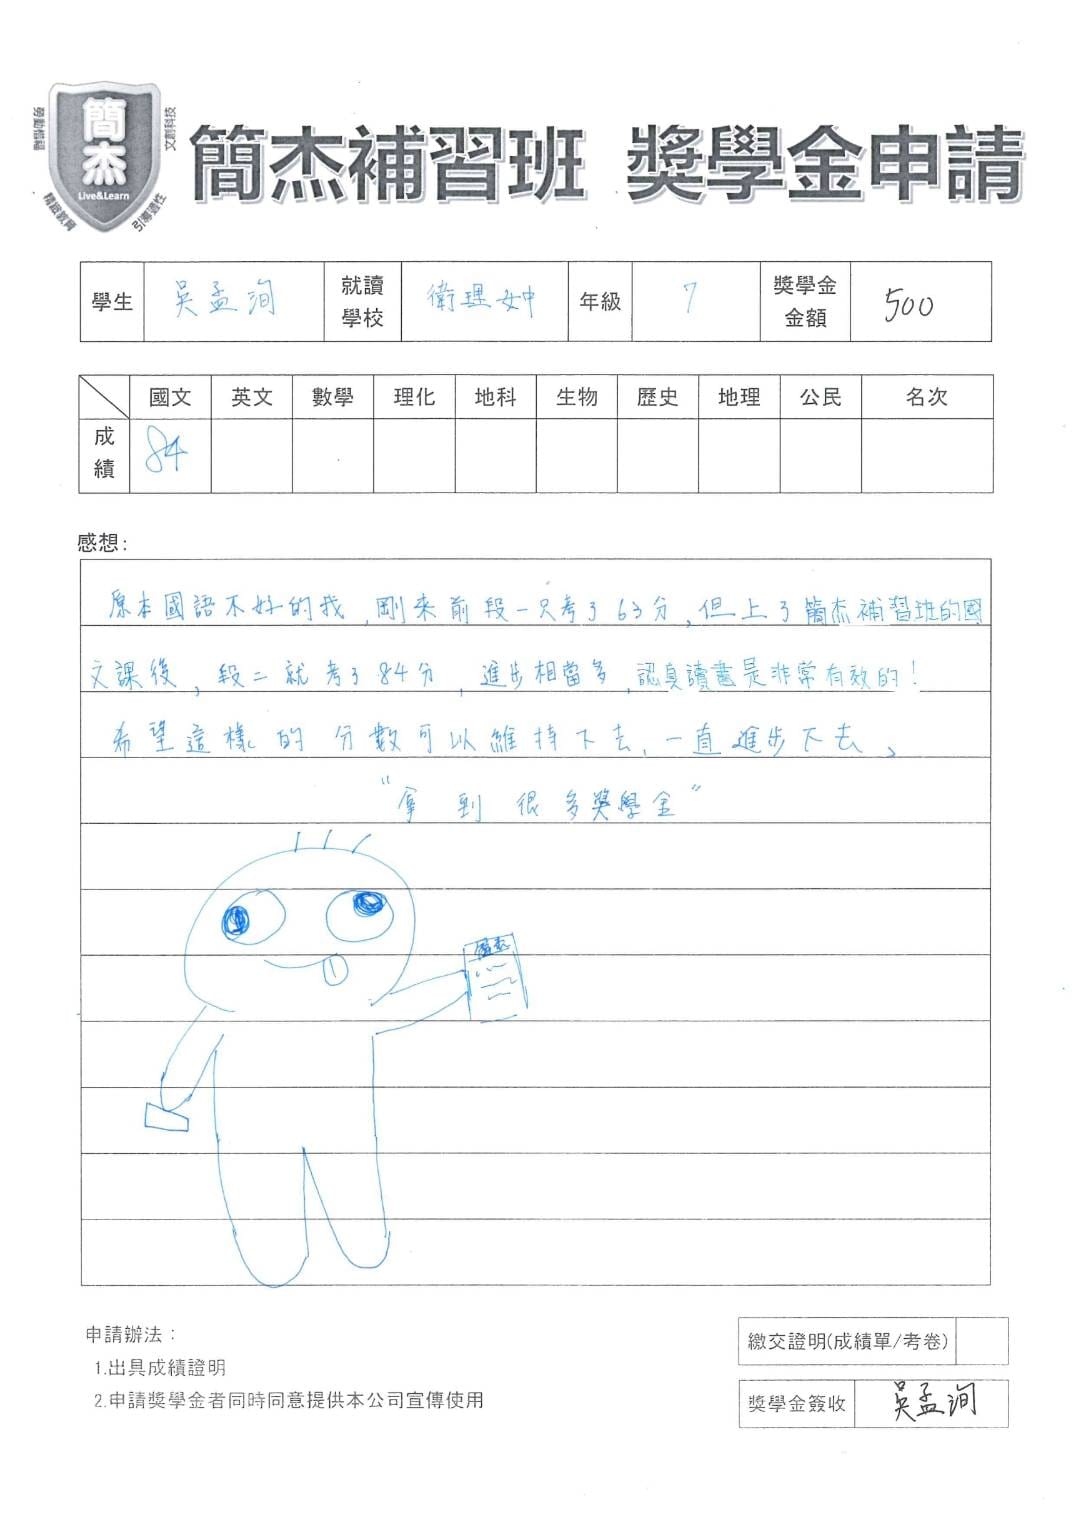 簡杰
Live&Learn
勞動惜福
精緻教育
引導適性
文創科技
簡杰補習班 獎學金申請
學生 吳孟洵 就讀學校 衛理女中 年級 7 獎學金金額 500
國文 英文 數學 理化 地科 生物 歷史 地理 公民 名次
成績 84
感想:
原本國語不好的我,剛來前段一只考了63分,但上了簡杰補習班的國
文課後,段二就考了84分,進步相當多,認真讀書是非常有效的!
希望這樣的分數可以維持下去,一直進步下去、
"拿到很多獎學金"
簡杰
申請辦法:
1.出具成績證明
2.申請獎學金者同時同意提供本公司宣傳使用
繳交證明(成績單/考卷)
獎學金簽收 吳孟洵